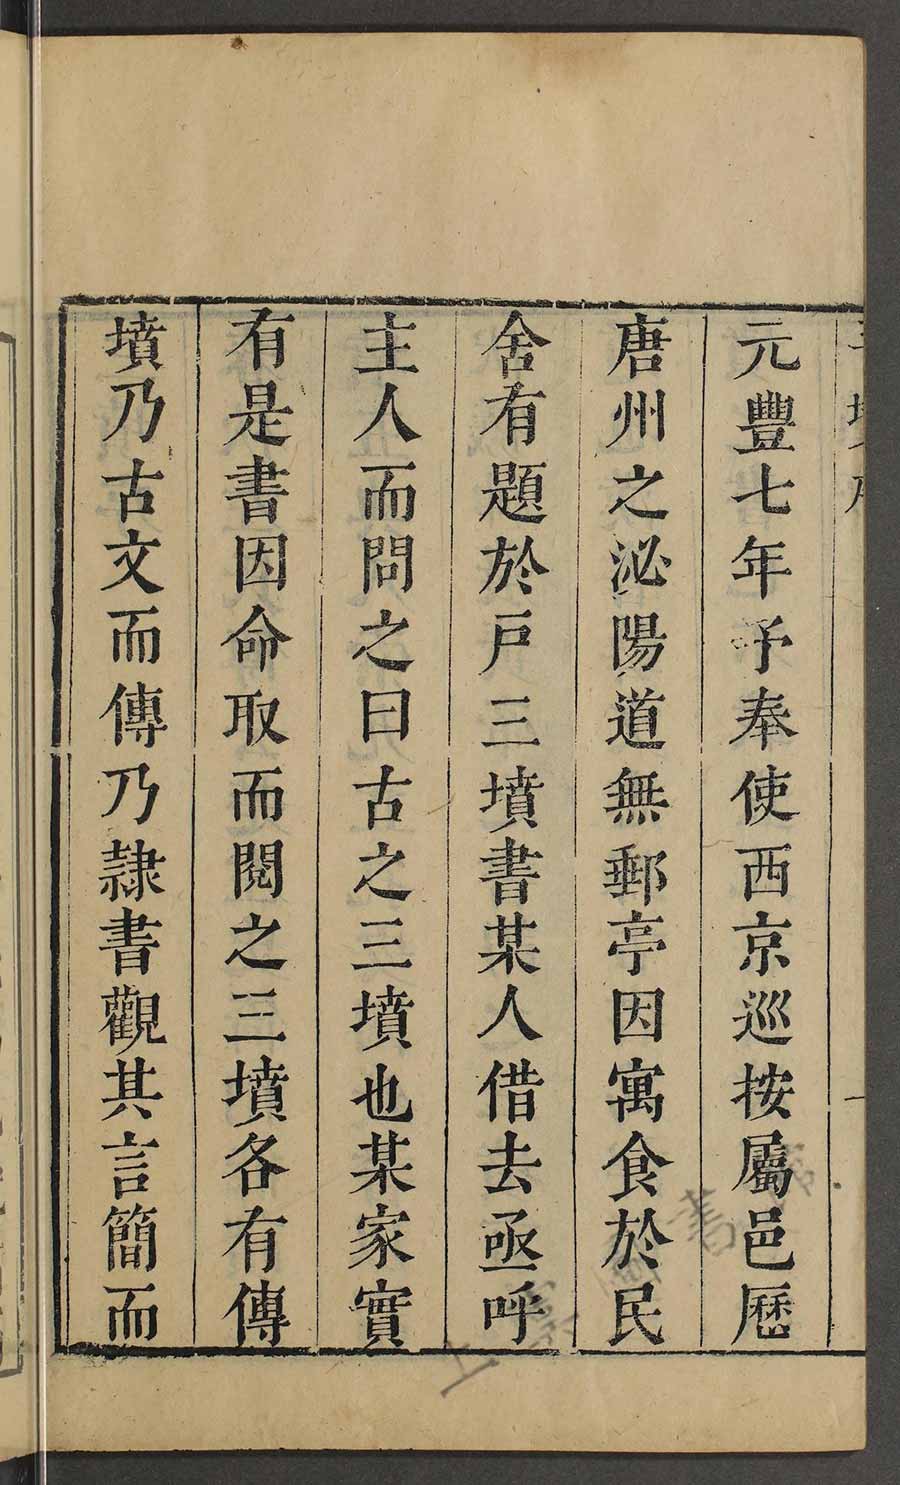 元豐七年予奉使西京巡按屬邑歷
唐州之泌陽道無郵亭因寓食於民
舍有題於戶三墳書某人借去亟呼
主人而問之曰古之三墳也某家實
有是書因命取而閱之三墳各有傳
墳乃古文而傳乃隷書觀其言簡而